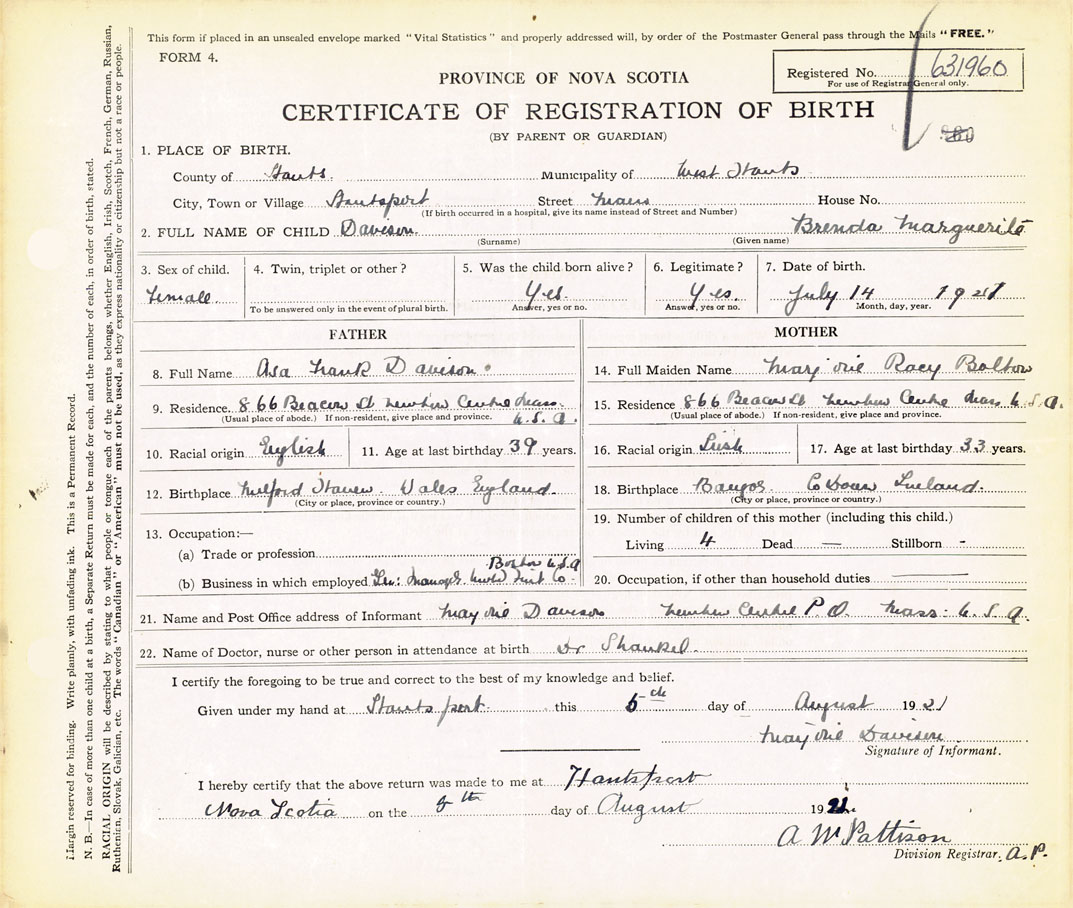 This form if placed in an unsealed envelope marked "Vital Statistics" and properly addressed will, by order of the Postmaster General pass through the Mails "FREE."
FORM 4.
Registered No. 631960
For use of Registrar General only.
PROVINCE OF NOVA SCOTIA
CERTIFICATE OF REGISTRATION OF BIRTH
(BY PARENT OR GUARDIAN)
1. PLACE OF BIRTH.
County of Hants. Municipality of West Hants
City, Town or Village Hantsport Street Main House No.
(If birth occurred in a hospital, give its name instead of Street and Number)
2. FULL NAME OF CHILD Davison. Brenda Marguerite
(Surname) (Given name)
3. Sex of child. 4. Twin, triplet or other? 5. Was the child born alive? 6. Legitimate? 7. Date of birth.
Female. Yes. Yes. July 14 1921
To be answered only in the event of plural birth. Answer, yes or no. Answer, yes or no. Month, day, year.
FATHER MOTHER
8. Full Name Asa Frank Davison. 14. Full Maiden Name Marjorie Racy Bolton
9. Residence 866 Beacon St Newton Centre Mass. U.S.A. 15. Residence 866 Beacon St Newton Centre Mass U.S.A.
(Usual place of abode.) If non-resident, give place and province. (Usual place of abode.) If non-resident, give place and province.
10. Racial origin English 11. Age at last birthday 39 years. 16. Racial origin Irish 17. Age at last birthday 33 years.
12. Birthplace Milford Haven. Wales England. 18. Birthplace Bangor. Co Down Ireland.
(City or place, province or country.) (City or place, province or country.)
13. Occupation:— 19. Number of children of this mother (including this child.)
(a) Trade or profession Living 4 Dead — Stillborn -
Boston U.S.A
(b) Business in which employed Gen: Manager. Fruit Co. 20. Occupation, if other than household duties —
21. Name and Post Office address of Informant Marjorie Davison Newton Centre P.O. Mass: U.S.A.
22. Name of Doctor, nurse or other person in attendance at birth Dr Shankel.
I certify the foregoing to be true and correct to the best of my knowledge and belief.
Given under my hand at Hantsport. this 5th day of August 1921
Marjorie Davison
Signature of Informant.
I hereby certify that the above return was made to me at Hantsport
Nova Scotia on the 8th day of August 1921.
A McPattison
Division Registrar. A.P.
Margin reserved for binding. Write plainly, with unfading ink. This is a Permanent Record.
N. B.—In case of more than one child at a birth, a Separate Return must be made for each, and the number of each, in order of birth, stated.
RACIAL ORIGIN will be described by stating to what people or tongue each of the parents belongs, whether English, Irish, Scotch, French, German, Russian,
Ruthenian, Slovak, Galician, etc. The words "Canadian" or "American" must not be used, as they express nationality or citizenship but not a race or people.